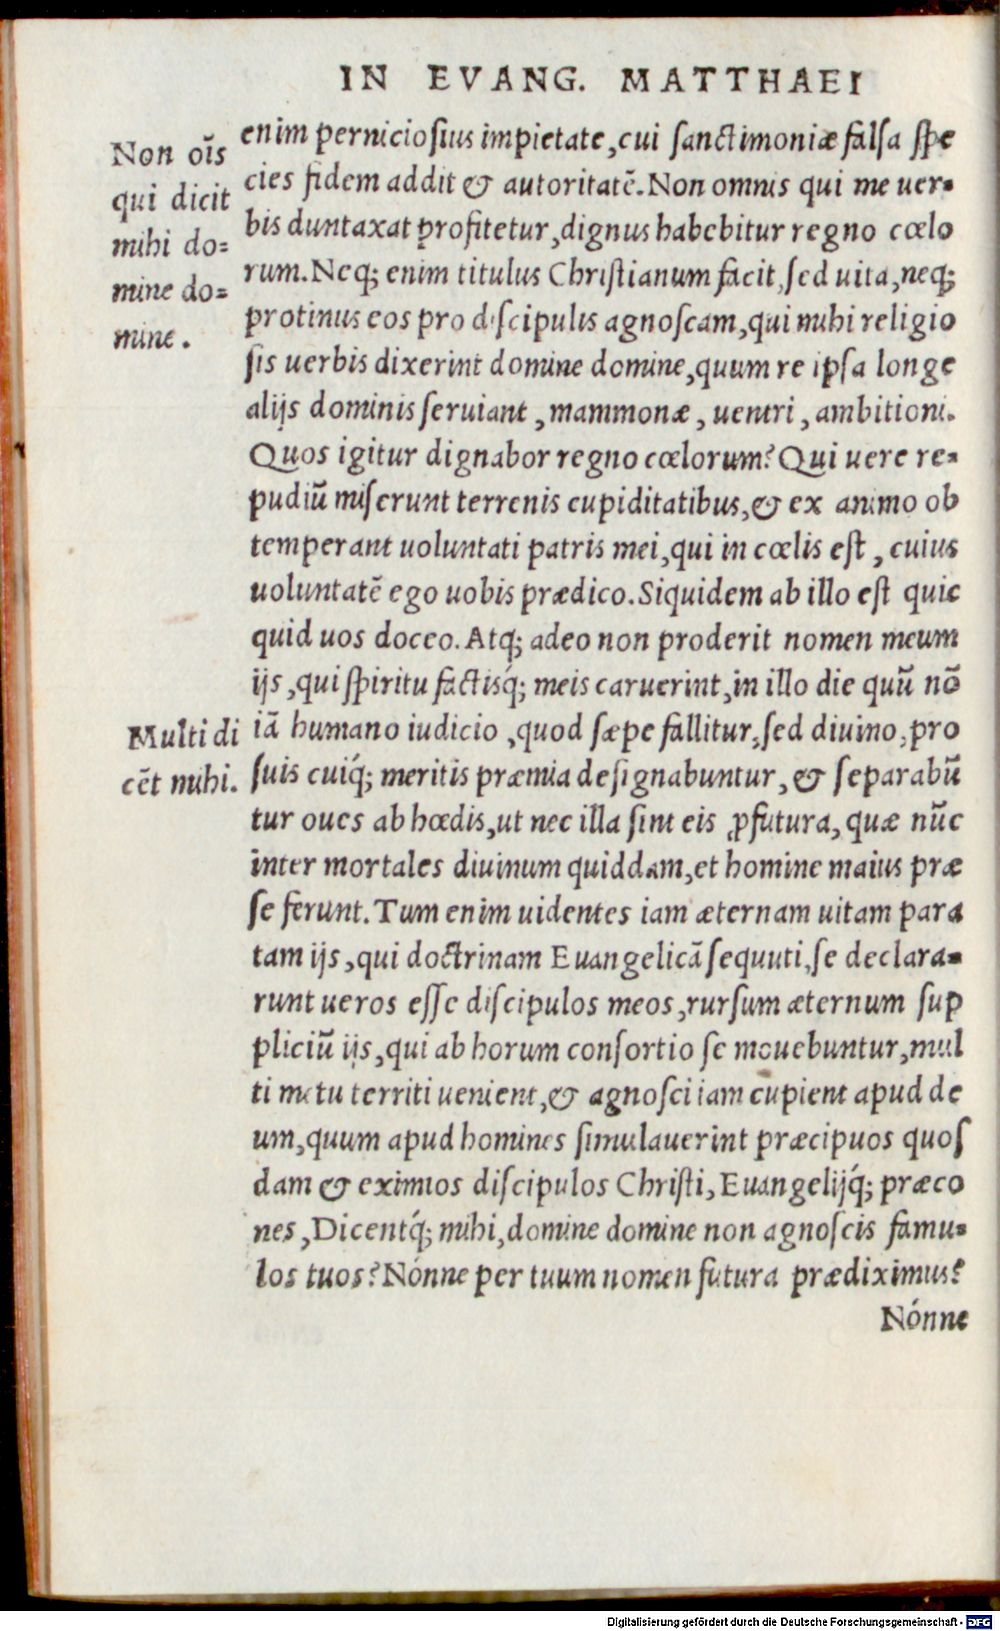 IN EVANG. MATTHAEI
Non oīs
qui dicit
mihi do=
mine do=
mine.
enim perniciosius impietate, cui sanctimoniæ falsa spe
cies fidem addit & autoritatē. Non omnis qui me uer-
bis duntaxat ꝓfitetur, dignus habebitur regno cœlo
rum. Neq; enim titulus Christianum facit, sed uita, neq;
protinus eos pro discipulis agnoscam, qui mihi religio
sis uerbis dixerint domine domine, quum re ipsa longe
alijs dominis seruiant, mammonæ, uentri, ambitioni.
Quos igitur dignabor regno cœlorum? Qui uere re-
pudiū miserunt terrenis cupiditatibus, & ex animo ob
temperant uoluntati patris mei, qui in cœlis est, cuius
uoluntatē ego uobis prædico. Siquidem ab illo est quic
quid uos doceo. Atq; adeo non proderit nomen meum
ijs, qui spiritu factisq́; meis caruerint, in illo die quū nō
Multi di
cēt mihi.
iā humano iudicio, quod sæpe fallitur, sed diuino, pro
suis cuiq́; meritis præmia designabuntur, & separabū
tur oues ab hœdis, ut nec illa sint eis ꝓfutura, quæ nūc
inter mortales diuinum quiddam, et homine maius præ
se ferunt. Tum enim uidentes iam æternam uitam para
tam ijs, qui doctrinam Euangelicā sequuti, se declara-
runt ueros esse discipulos meos, rursum æternum sup
pliciū ijs, qui ab horum consortio se mouebuntur, mul
ti metu territi uenient, & agnosci iam cupient apud de
um, quum apud homines simulauerint præcipuos quos
dam & eximios discipulos Christi, Euangelijq́; præco
nes, Dicentq́; mihi, domine domine non agnoscis famu-
los tuos? Nónne per tuum nomen futura prædiximus?
Nónne
Digitalisierung gefördert durch die Deutsche Forschungsgemeinschaft - DFG